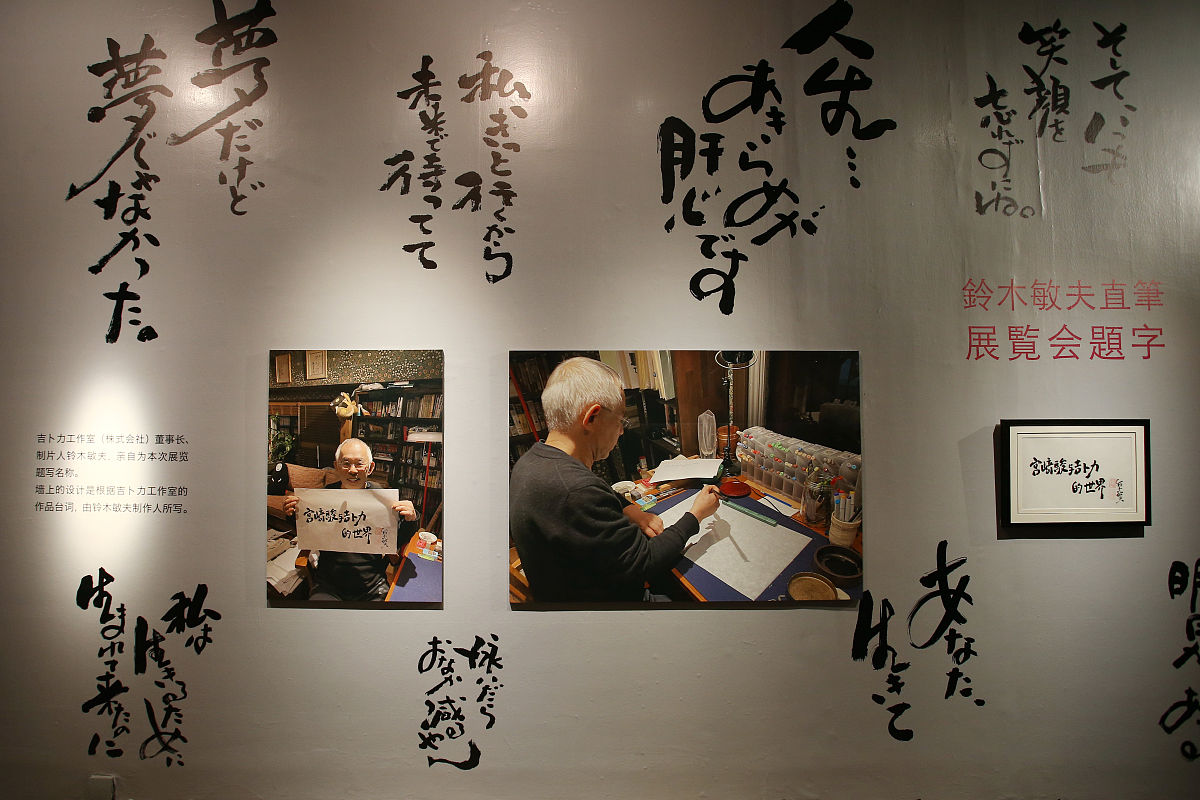 夢だけど
夢じゃなかった。
私、きっと行くから
未来で待ってて
人生…
あきらめが
肝心です
そして、いつも
笑顔を
忘れずにね。
鈴木敏夫直筆
展覧会題字
吉卜力工作室（株式会社）董事长、
制片人铃木敏夫，亲自为本次展览
题写名称。
墙上的设计是根据吉卜力工作室的
作品台词，由铃木敏夫制作人所写。
宮崎駿与吉卜力
的世界
宮崎駿与吉卜力
的世界
私は
生きるために
生まれて来たのに
いだら
おなか減るやん
あなた、
生きて